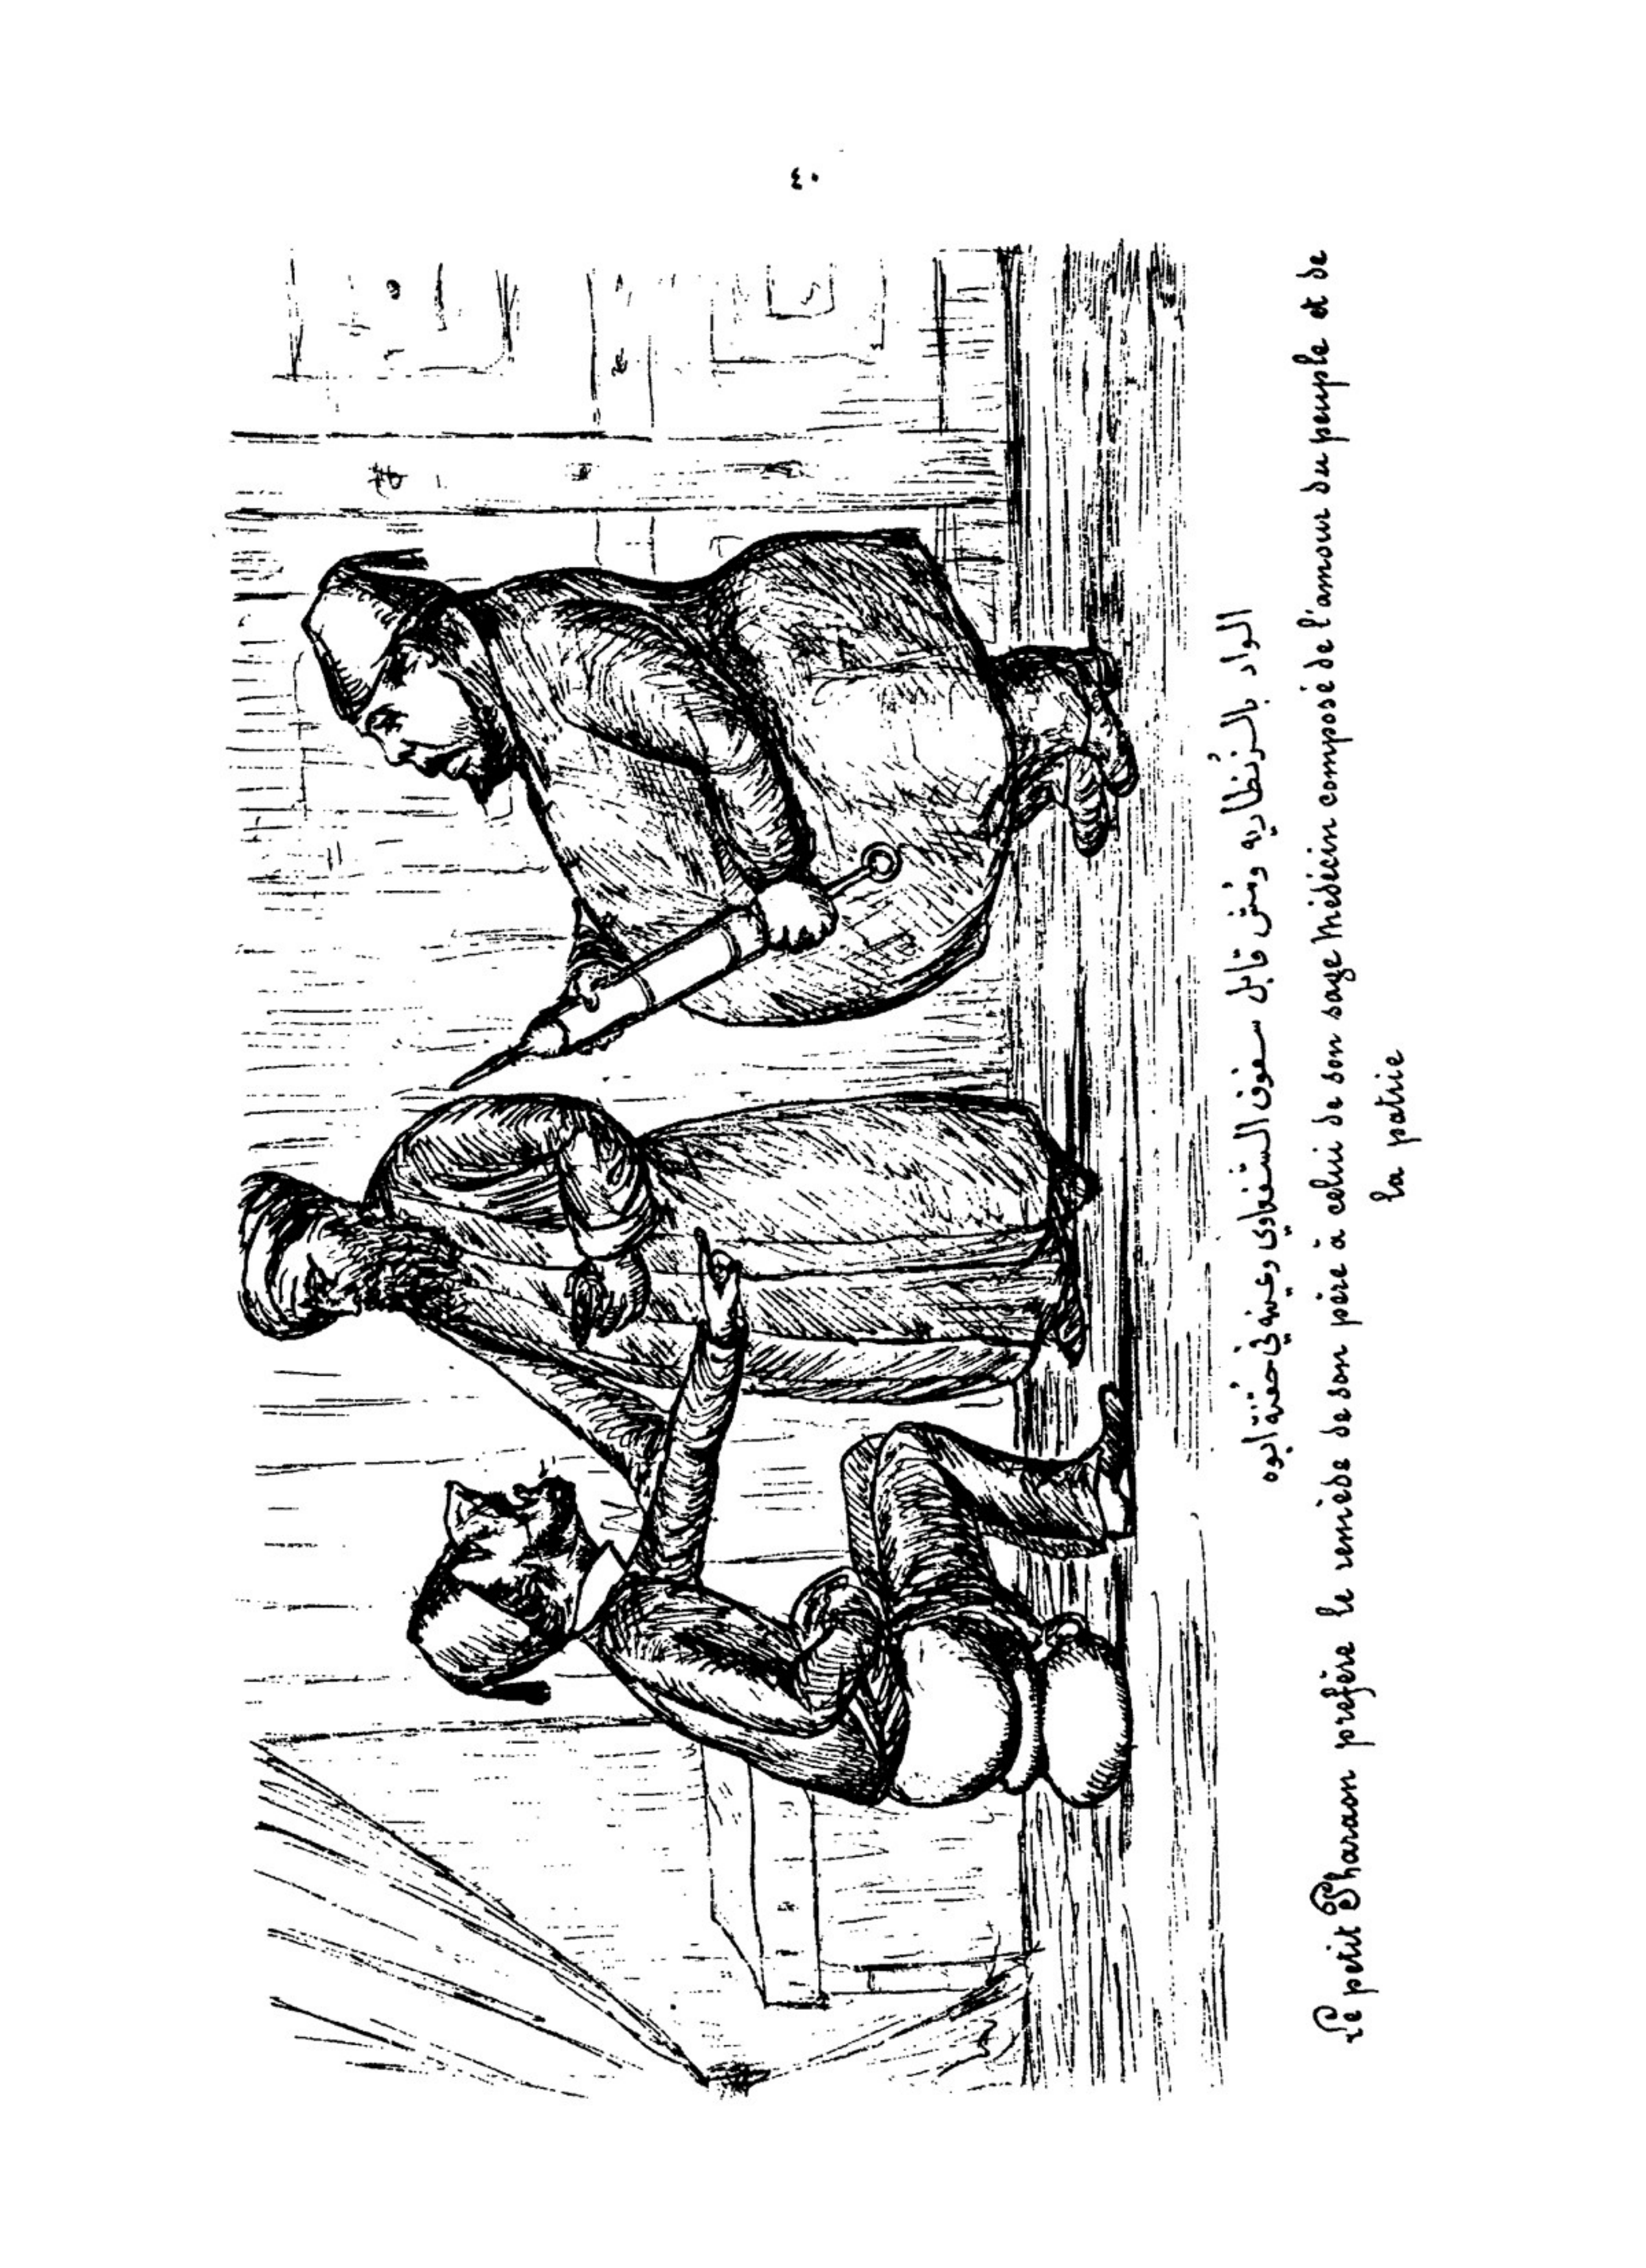 ٤٠
الواد بالزنطاريه ومنش قابل سفوف الشفاوى وعينه في حقنة ابوه
Le petit Pharaon préfère le remède de son père à celui de son sage Médecin composé de l'amour du peuple et de
la patrie